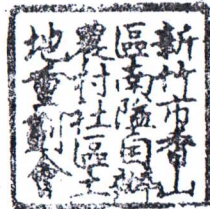 新竹市香山
區南隘田園
農村社區土
地重劃會